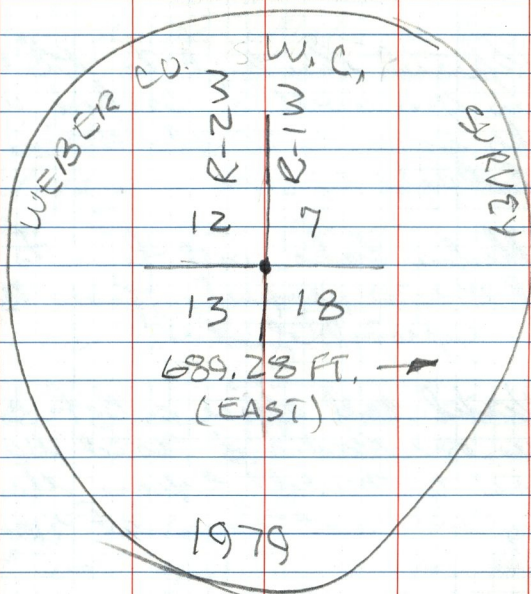 WEBER CO. SURVEY
W.C.
R-2W R-1W
12 7
13 18
689.28 FT.
(EAST)
1979